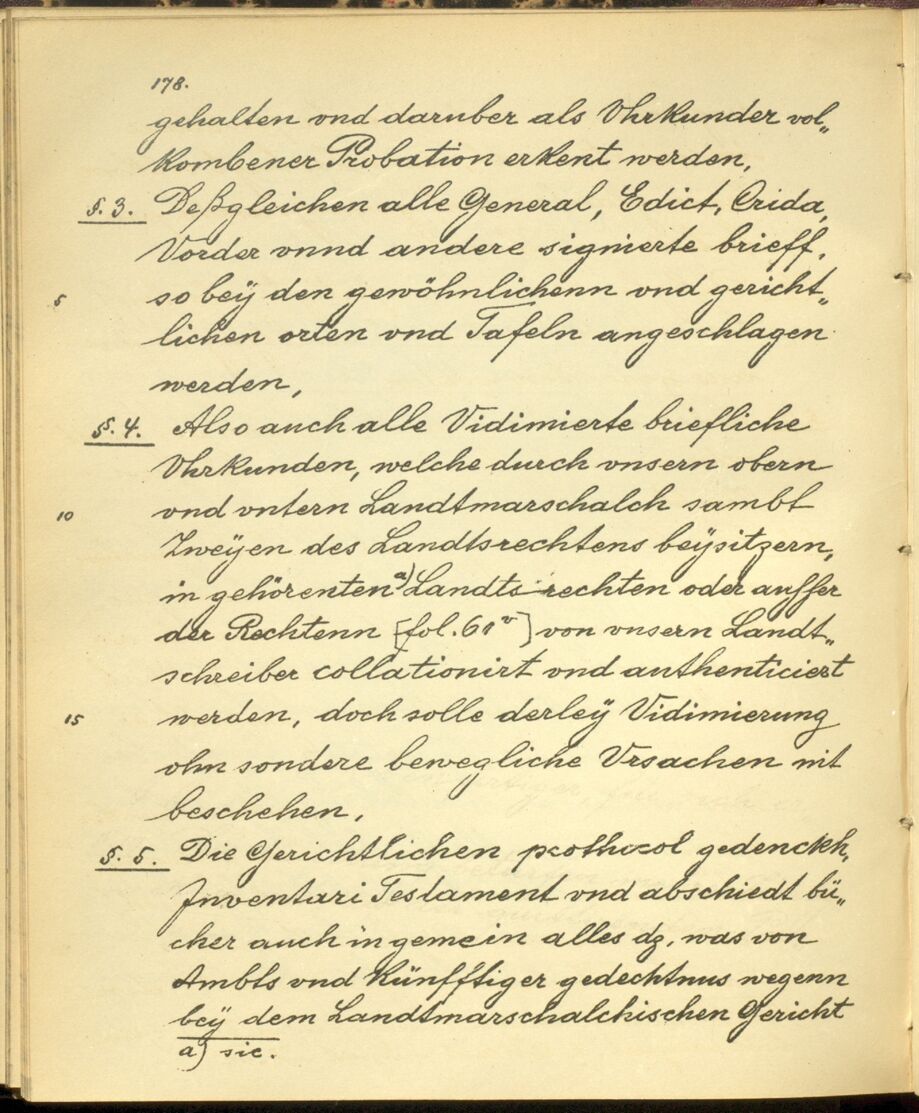 178.
gehalten vnd daruber als Vhrkunder vol„
kombener Probation erkent werden,
§. 3. Deßgleichen alle General, Edict, Crida,
Vorder vnnd andere signierte brieff,
5 so beÿ den gewöhnlichenn vnd gericht„
lichen orten vnd Tafeln angeschlagen
werden,
§. 4. Also auch alle Vidimierte briefliche
Vhrkunden, welche durch vnsern obern
10 vnd vntern Landtmarschalch sambt
Zweÿen des Landtsrechtens beÿsitzern,
in gehörenten a) Landts rechten oder ausser
der Rechtenn [fol. 60v] von vnsern Landt„
schreiber collationirt vnd authenticiert
15 werden, doch solle derleÿ Vidimierung
ohn sondere bewegliche Vrsachen nit
beschehen.
§. 5. Die Gerichtlichen prothocol gedenckh,
Inventari Testament vnd abschiedt bü„
cher auch in gemein alles dz, was von
Ambts vnd künfftiger gedechtnus wegenn
beÿ dem Landtmarschalchischen Gericht
a) sic.